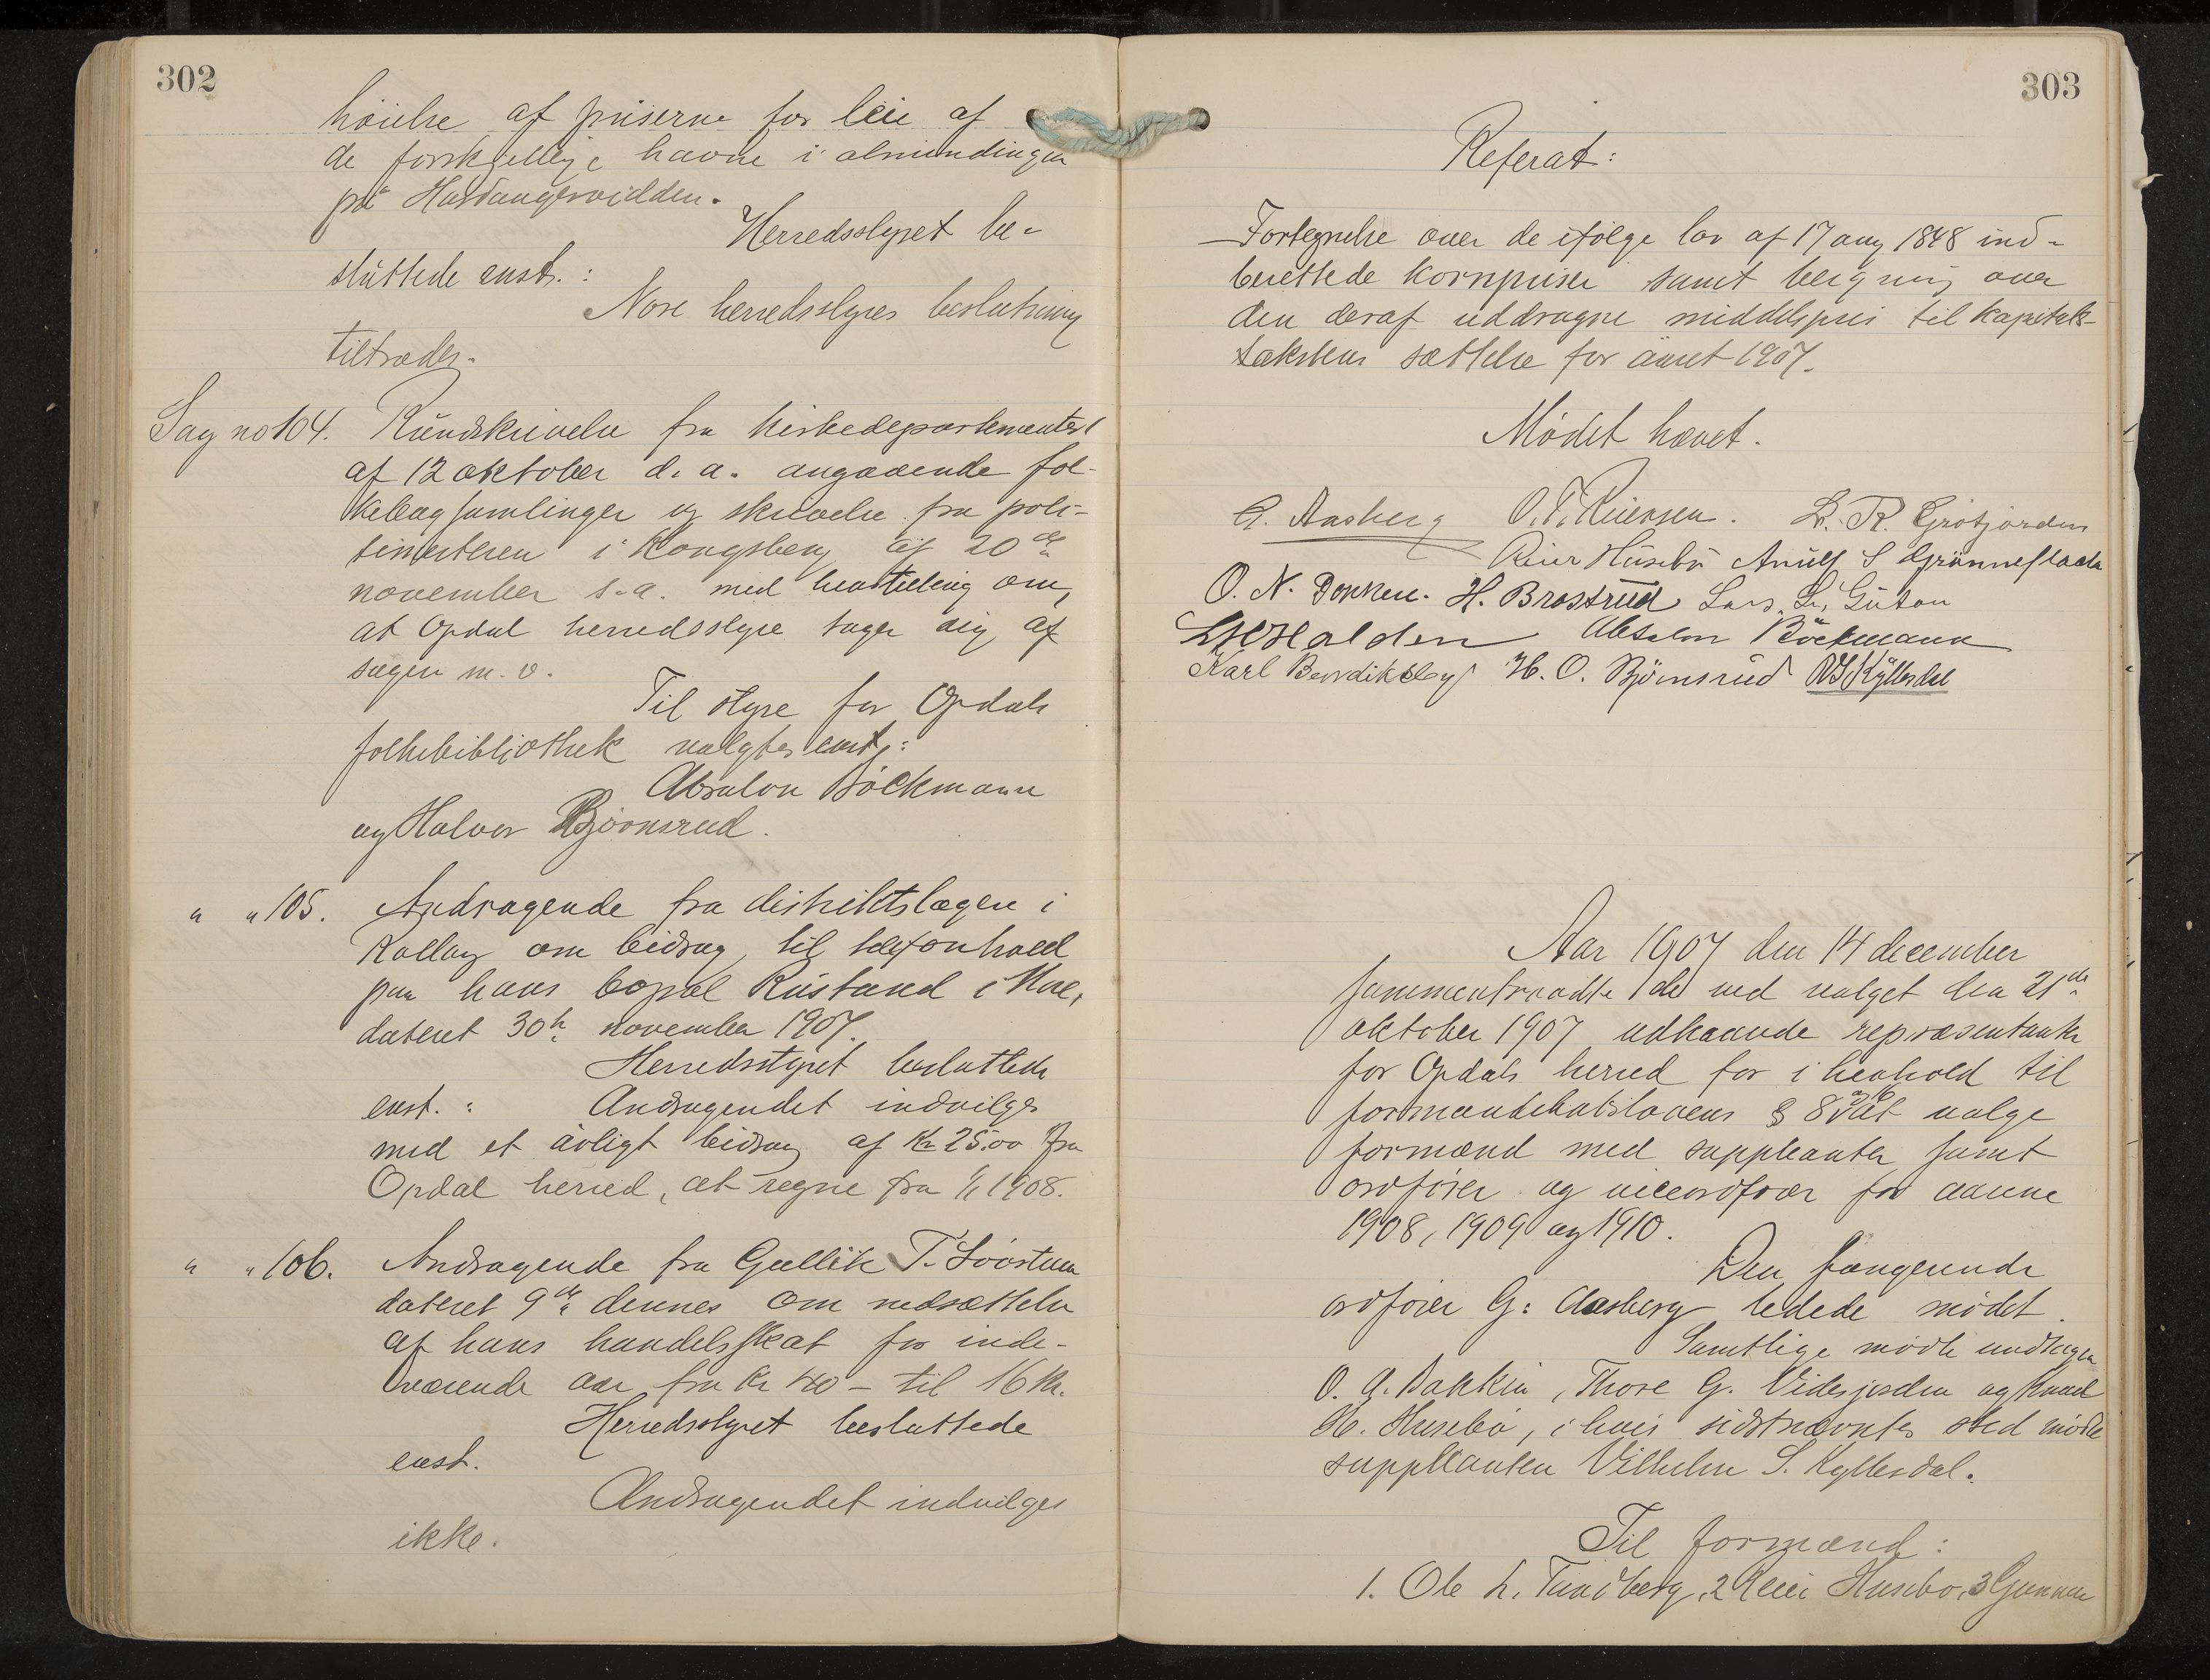 302
høielse af priserne for leie af
de forskjellige havne i almindingen
på Hardangervidden.
Herredsstyret be-
sluttede enst. :
Nore herredsstyres beslutning
tiltrædes.
Sag no 104. Rundskrivelse fra kirkedepartementet
af 12 oktober d. a. angaaende fol-
kebogsamlinger og skrivelse fra poli-
timesteren i Kongsberg af 20de
november s. a. med henstilling om,
at Opdal herredsstyre tager sig af
sagen m. v.
Til styre for Opdals
folkebibliothek valgtes enst.:
Absalon Böckmann
og Halvor Bjørnsrud.
" " 105. Andragende fra distriktslægen i
Rollag om bidrag til telefonhold
paa hans bopæl Rustand i Nore,
dateret 30te november 1907.
Herredsstyret besluttede
enst. : Andragendet indvilges
med et årligt bidrag af Kr 25.00 fra
Opdal herred, at regne fra 1/1 1908.
" " 106. Andragende fra Gullik T.
dateret 9de dennes om nedsættelse
af hans handelsskat for inde-
værende aar fra Kr 40 - til 16 Kr.
Herredsstyret besluttede
enst.
Andragendet indvilges
ikke.
303
Referat:
Fortegnelse over de ifølge lov af 17 aug 1848 ind-
berettede kornpriser samt beregning over
den deraf uddragne middelpris til kapitals-
takstens sættelse for året 1907.
Mødet hævet.
G. Aasberg O. T. L. R. Grøtjorden
Reier Husebö S Grönneflaata
O. N. H. Brøstrud Lars L. Gúton
Halden Absalon Böckmann
Karl Bendiksby H. O. Bjørnsrud VS Kyllesdal
Aar 1907 den 14 december
sammentraadte de ved valget den 21de
oktober 1907 udkaarede repræsentanter
for Opdals herred for i henhold til
formandskabslovens § 8 at valge
formænd med suppleanter samt
ordfører og viceordfører for aarene
1908, 1909 og 1910.
Den fungerende
ordfører G. Aasberg ledede mødet.
Samtlige mødte undtagen
O. A. Bakkin, Thore G. Vidsjorden og Knud
H. Husebø, i hvis sidstnævntes sted mødte
suppleanten Vilhelm S. Kyllesdal.
Til formænd:
1. Ole L. Tundberg, 2 Reier Husebø, 3 Gunnar